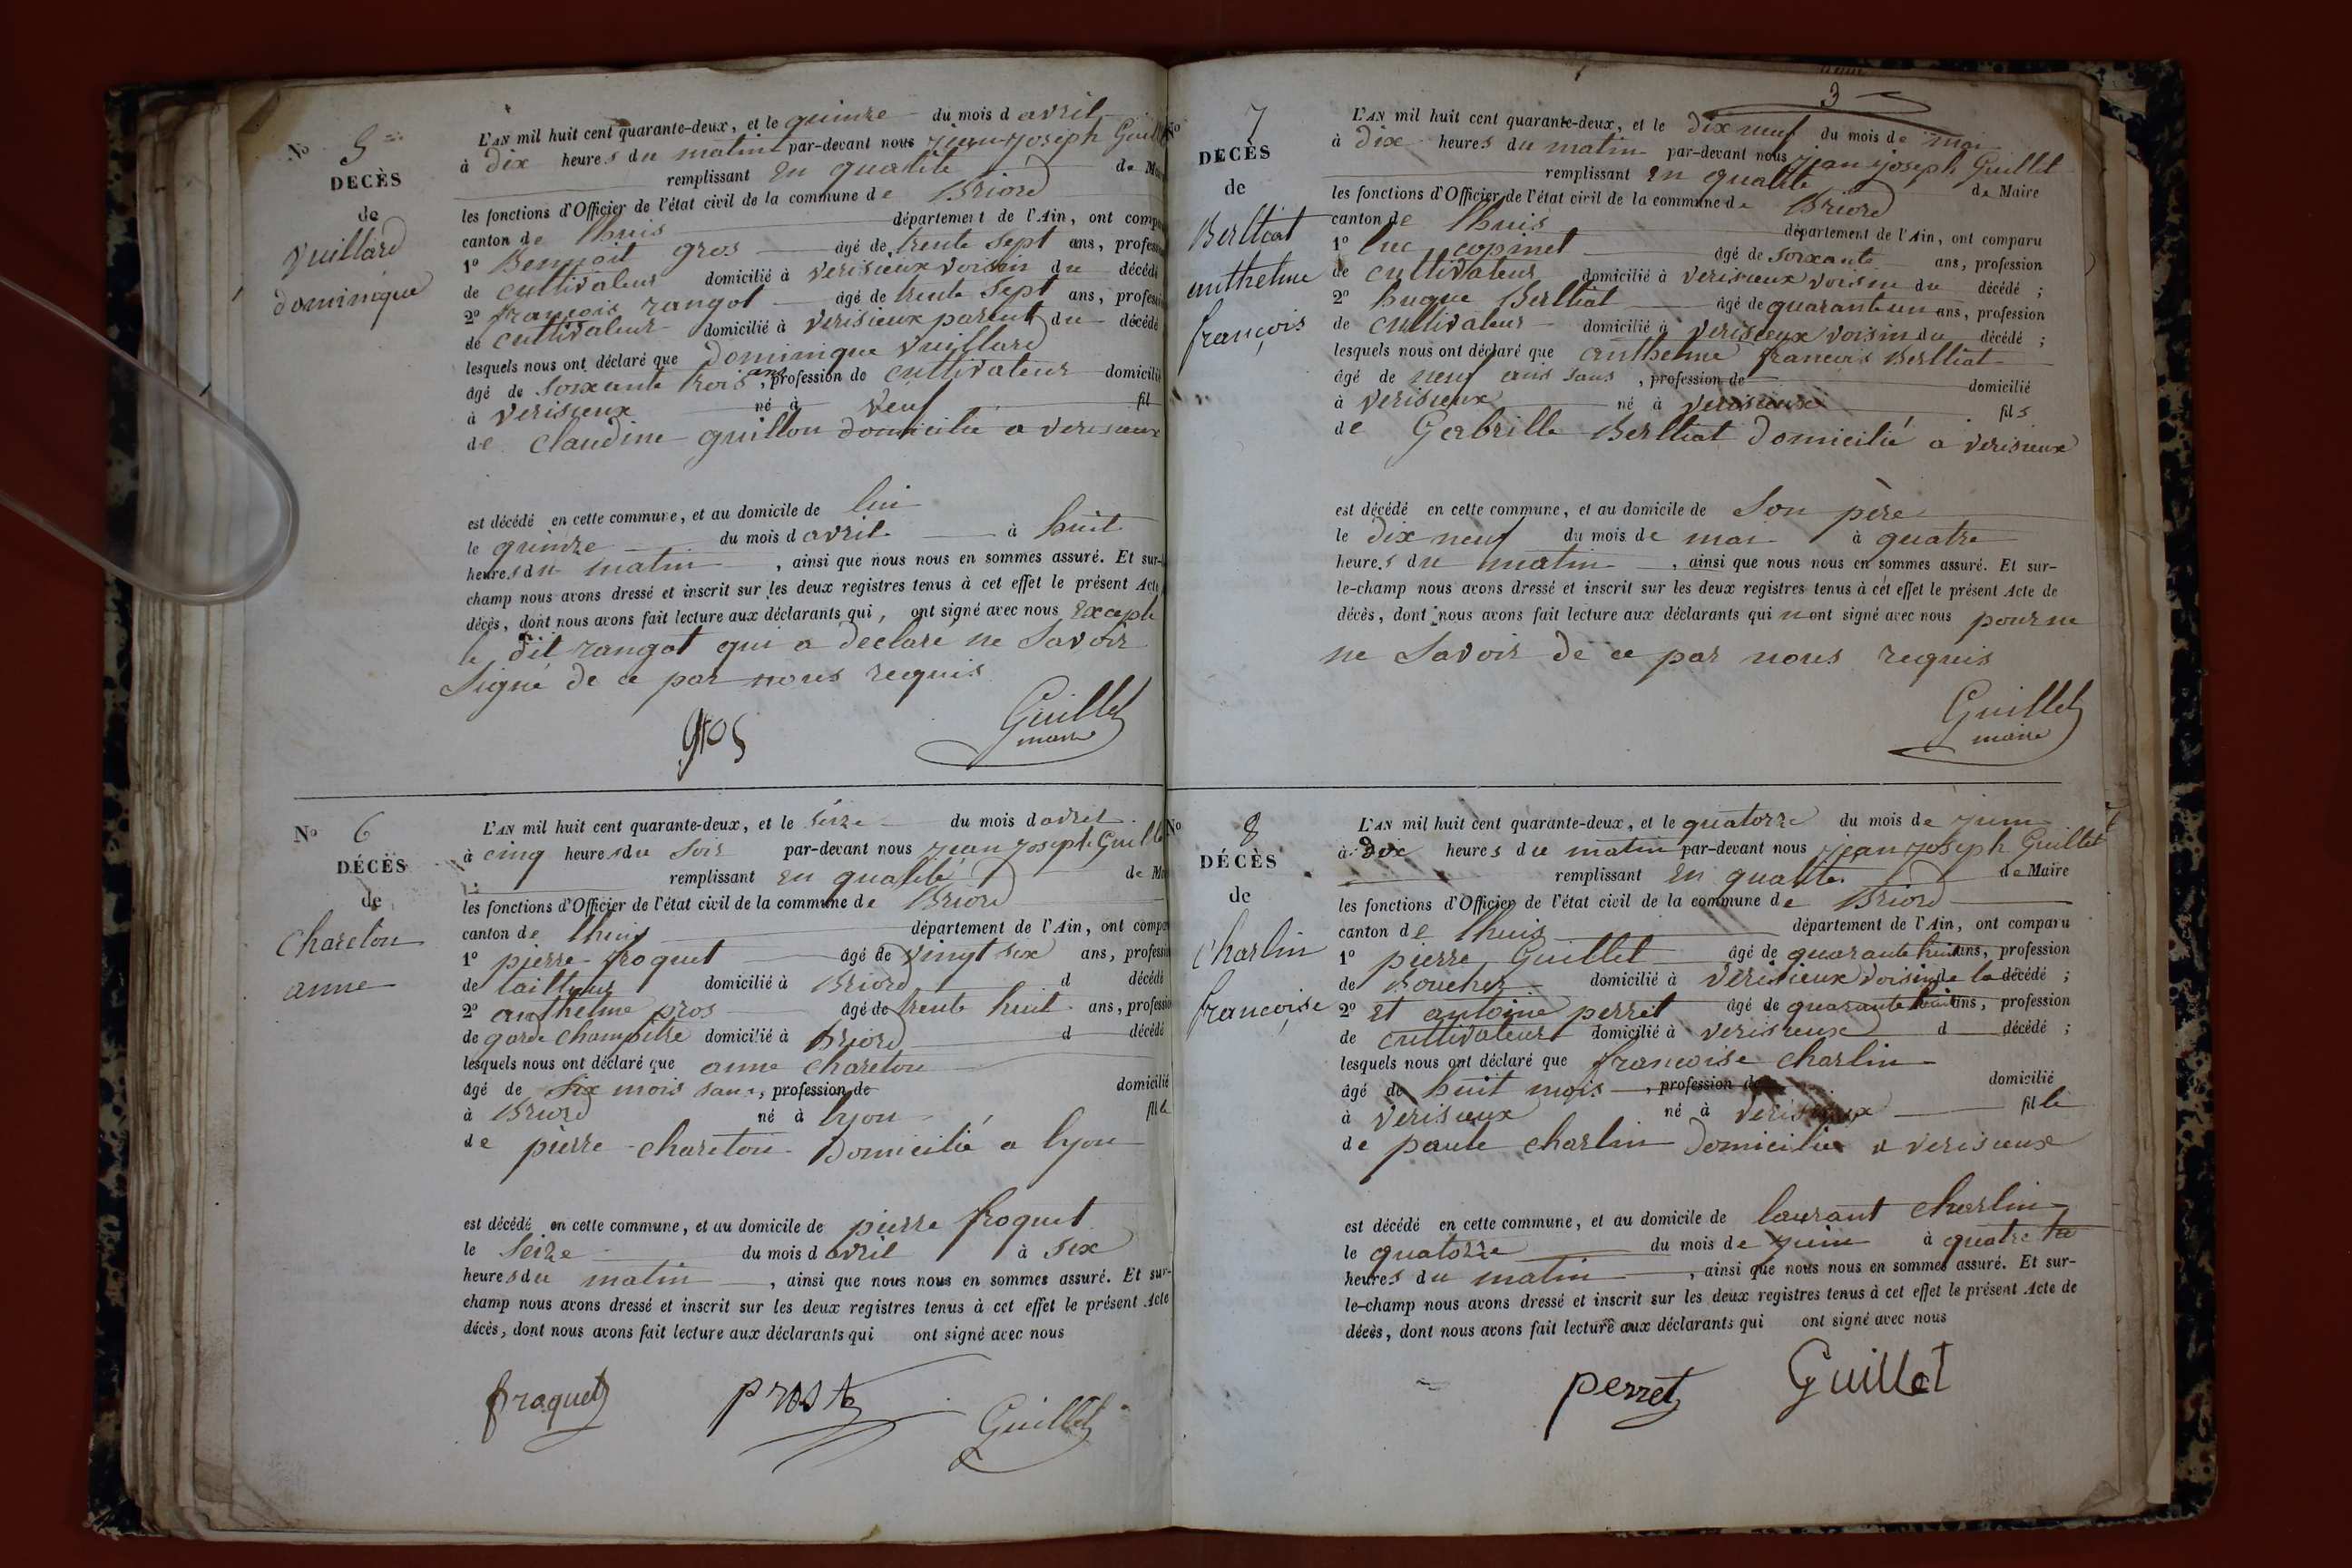 N° 5
DECÈS
de
Vuillard
dominique
L'AN mil huit cent quarante-deux, et le quinze du mois d avril
à dix heures du matin par-devant nous jean joseph Guill
remplissant en qualité de M
les fonctions d'Officier de l'état civil de la commune de Briord
canton de lhuis département de l'Ain, ont comp
1° Bennoit gros âgé de trente sept ans, profess
de cultivateur domicilié à verisieux voisin du décédé
2° françois rangot âgé de trente sept ans, profess
de cultivateur domicilié à verisieux parent du décédé
lesquels nous ont déclaré que dominique vuillard
âgé de soixante trois ans, profession de cultivateur domicilié
à verisieux né à veuf fil
de claudine guillon domicilié a verisieux
est décédé en cette commune, et au domicile de lui
le quinze du mois d avril à huit
heures du matin, ainsi que nous nous en sommes assuré. Et sur-
champ nous avons dressé et inscrit sur les deux registres tenus à cet effet le présent Acte
décès, dont nous avons fait lecture aux déclarants qui, ont signé avec nous excepte
le dit rangot qui a declare ne savoir
signé de ce par nous requis
gros Guillet
maire
N° 6
DÉCÈS
de
Chareton
anne
L'AN mil huit cent quarante-deux, et le seize du mois d avril
à cinq heures du soir par-devant nous jean joseph Guille
remplissant en qualité de Ma
les fonctions d'Officier de l'état civil de la commune de Briord
canton de lhuis département de l'Ain, ont compa
1° pierre froquet âgé de vingt six ans, professi
de tailleur domicilié à Briord d décédé
2° anthelme pros âgé de trente huit ans, professio
de garde champêtre domicilié à Briord d décédé
lesquels nous ont déclaré que anne chareton
âgé de six mois sans, profession de domicilié
à Briord né à lyon fille
de pierre chareton Domicilié a lyon
est décédé en cette commune, et au domicile de pierre froquet
le seize du mois d avril à six
heures du matin, ainsi que nous nous en sommes assuré. Et sur-
champ nous avons dressé et inscrit sur les deux registres tenus à cet effet le présent Acte
décès, dont nous avons fait lecture aux déclarants qui ont signé avec nous
froquet prost Guillet
3
N° 7
DECÈS
de
Berlliat
anthelme
françois
L'AN mil huit cent quarante-deux, et le dix neuf du mois de mai
à dix heures du matin par-devant nous jean joseph Guillet
remplissant en qualité de Maire
les fonctions d'Officier de l'état civil de la commune de Briord
canton de lhuis département de l'Ain, ont comparu
1° luc copinet âgé de soixante ans, profession
de cultivateur domicilié à verisieux voisin du décédé ;
2° hugue Berlliat âgé de quarante un ans, profession
de cultivateur domicilié à verisieux voisin du décédé ;
lesquels nous ont déclaré que anthelme francois Berlliat
âgé de neuf ans sans, profession de domicilié
à verisieux né à verisieux fils
de Gabrille Berlliat domicilié a verisieux
est décédé en cette commune, et au domicile de son père
le dix neuf du mois de mai à quatre
heures du matin, ainsi que nous nous en sommes assuré. Et sur-
le-champ nous avons dressé et inscrit sur les deux registres tenus à cet effet le présent Acte de
décès, dont nous avons fait lecture aux déclarants qui nont signé avec nous pour ne
ne savoir de ce par nous requis
Guillet
maire
N° 8
DÉCÈS
de
Charlin
francoise
L'AN mil huit cent quarante-deux, et le quatorze du mois de juin
à Dix heures du matin par-devant nous jean joseph Guillet
remplissant en qualité de Maire
les fonctions d'Officier de l'état civil de la commune de Briord
canton de lhuis département de l'Ain, ont comparu
1° pierre Guillet âgé de quarante huit ans, profession
de Boucher domicilié à verisieux voisin de la décédé ;
2° et antoine perret âgé de quarante huit ans, profession
de cultivateur domicilié à verisieux d décédé ;
lesquels nous ont déclaré que francoise charlin
âgé de huit mois, profession de domicilié
à verisieux né à verisieux fille
de paule charlin domicilié a verisieux
est décédé en cette commune, et au domicile de laurant charlin
le quatorze du mois de juin à quatre
heures du matin, ainsi que nous nous en sommes assuré. Et sur-
le-champ nous avons dressé et inscrit sur les deux registres tenus à cet effet le présent Acte de
décès, dont nous avons fait lecture aux déclarants qui ont signé avec nous
perret Guillet